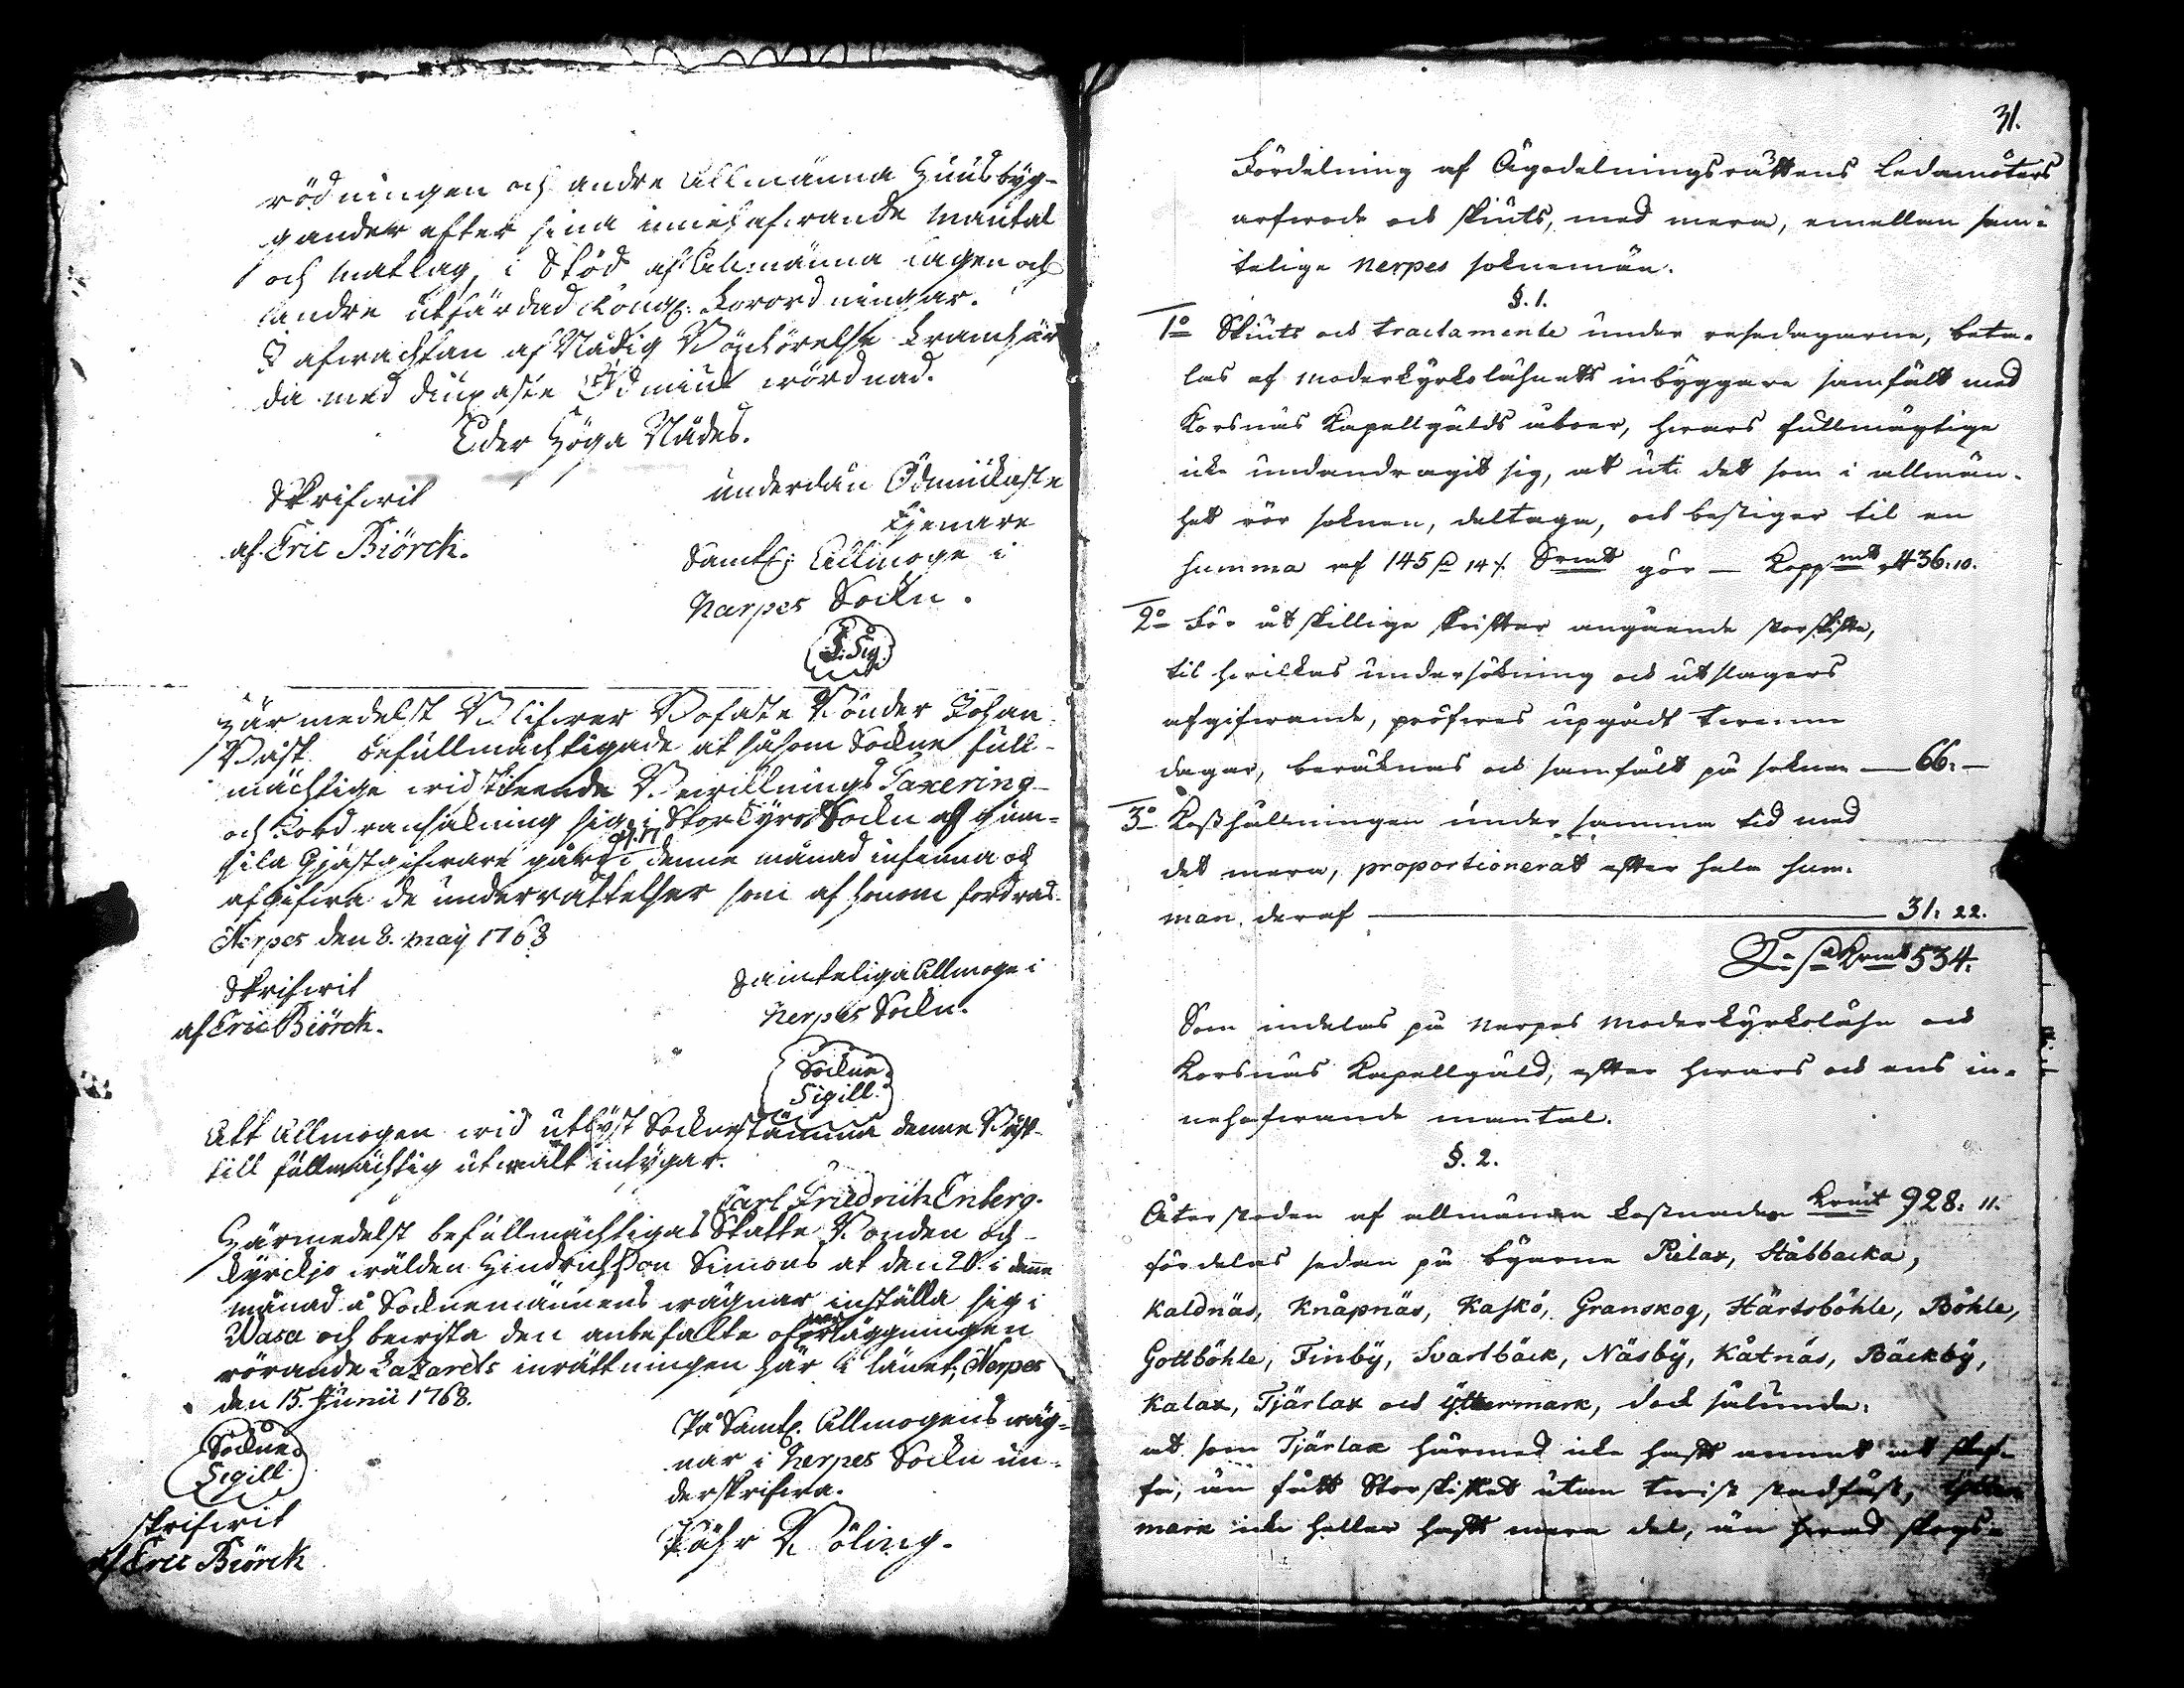 rödningen och andre Allmänna Huusbyg-
gander efter sina innehafwande Mantal
och Matlag, i Stöd af Allmänna Lagen och
andre utfärdad Kongl: Förordningar.
I afwachtan af Nådig Bönhörelse framhär
da med diupaste Ödmiuk wördnad.
Eder Höga Nådes.
Skrifwit
af Eric Biörck.
underdån Ödmiukaste
Tjenare
Samtl: Allmoge i
Narpes Sockn.
S: Sig:
Här medelst Blifwer Bofaste Bonden Johan
Påsk befullmächtigade at såsom Sockne full-
mächtige wid Bewillnings Taxering
och Jord ransakning sig i Storkyro Sockn och Gum-
sila Gjästgifware gård d. 17 i denne månad infinna och
afgifwa de underrättelser som af honom fordras.
Nerpes den 8. May 1768
Skrifwit
af Eric Biörck.
Samteliga Allmoge i
Nerpes Sockn.
Sockne
Sigill.
Att Allmogen wid utlyst Sockne stämma denne Påsk
till fullmächtig utwalt intygar.
Carl Friedrich Enberg.
Härmedelst befullmächtigas Skatte Bonden och
Kyrckjo wälden Hindrichsson Simons at den 20 i denne
månad å Socknemännens wägnar inställa sig i
Wasa och bewista den anbefallte öfwerläggningen
rörande Lazarets inrättningen här i länet, Nerpes
den 15. Junii 1768.
Sockne
Sigill
På Samtl. Allmogens wäg-
nar i Nerpes Sockn un-
derskrifwa.
skrifwit
af Eric Biörck
Påhr Böling.
31.
Fördelning af Ägodelningsrättens Ledamöters
arfwode och skiuts, med mera, emellan sam-
telige Nerpes soknemän.
§. 1.
1o Skiuts och tractamente under resedagarne, beta-
las af Moderkyrkolähnets inbyggare samfält med
Korsnäs Kapellgälds åboer, hwars fullmägtige
icke undandragit sig, at uti det som i allmän-
het rör soknen, deltaga, och bestiger til en
summa af 145 14 Srmt gör — Koppmt 436:10.
2o För åtskillige skrifter angående storskifte,
til hwilkas undersökning och utslagers
afgifwande, pröfwes upgådt twenne
dagar, beräknas och samfält på soknen — 66: —
3o Kosthållningen under samma tid med
det mera, proportionerat efter hela sum-
man deraf — 31: 22.
Sa Krmt 534.
Som indelas på Nerpes Moderkyrkolähn och
Korsnäs Kapellgäld, efter hwars och ens in-
nehafwande mantal.
§. 2.
Återstoden af allmänna kostnaden Krmt 928: 11.
fördelas sedan på byarne Pielax, Ståbbacka,
Kaldnäs, Knåpnäs, Kaskö, Granskog, Härtsböhle, Böhle,
Gottböhle, Finby, Svartbäck, Näsby, Kåtnäs, Bäckby,
Kalax, Tjärlax och Yttermark, dock sålunda:
at som Tjärlax härmed icke haft annat at skaf-
fa, än fått Storskiftet utan twist stadfäst, Ytter
mark icke heller haft mera del, än hwad skogs-